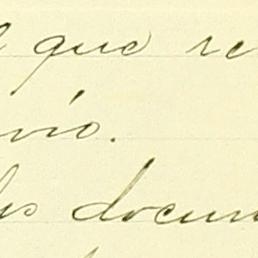 l que re
vió.
les docum